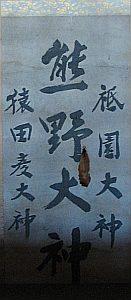 祇園大神
熊野大神
猿田彦大神